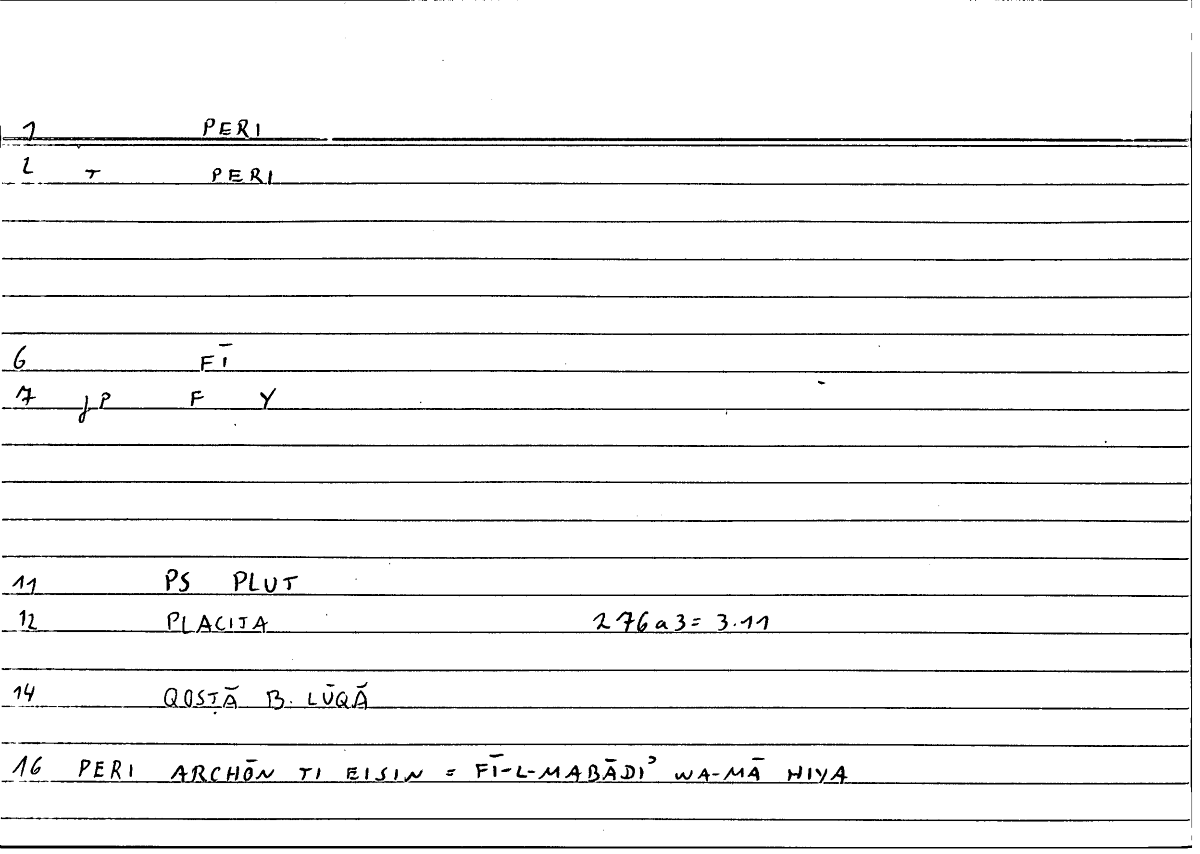 1 PERI
2 T PERI
6 FĪ
7 JP F Y
11 PS PLUT
12 PLACITA 276a3 = 3.11
14 QOSṬĀ B. LŪQĀ
16 PERI ARCHŌN TI EISIN = FĪ-L-MABĀDIʾ WA-MĀ HIYA